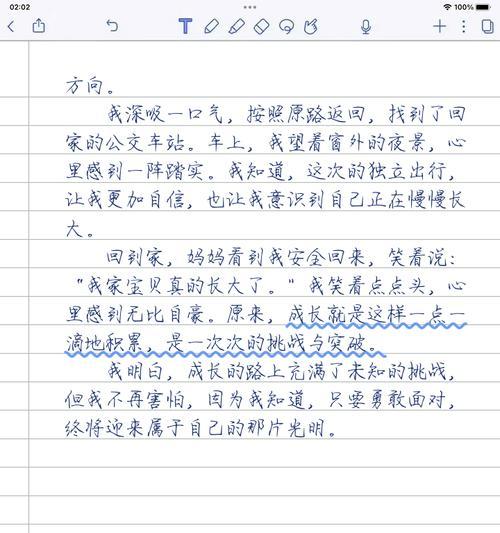 02:02
100%
T
方向。
我深吸一口气，按照原路返回，找到了回
家的公交车站。车上，我望着窗外的夜景，心
里感到一阵踏实。我知道，这次的独立出行，
让我更加自信，也让我意识到自己正在慢慢长
大。
回到家，妈妈看到我安全回来，笑着说：
“我家宝贝真的长大了。”我笑着点点头，心
里感到无比自豪。原来，成长就是这样一点一
滴地积累，是一次次的挑战与突破。
我明白，成长的路上充满了未知的挑战，
但我不再害怕，因为我知道，只要勇敢面对，
终将迎来属于自己的那片光明。